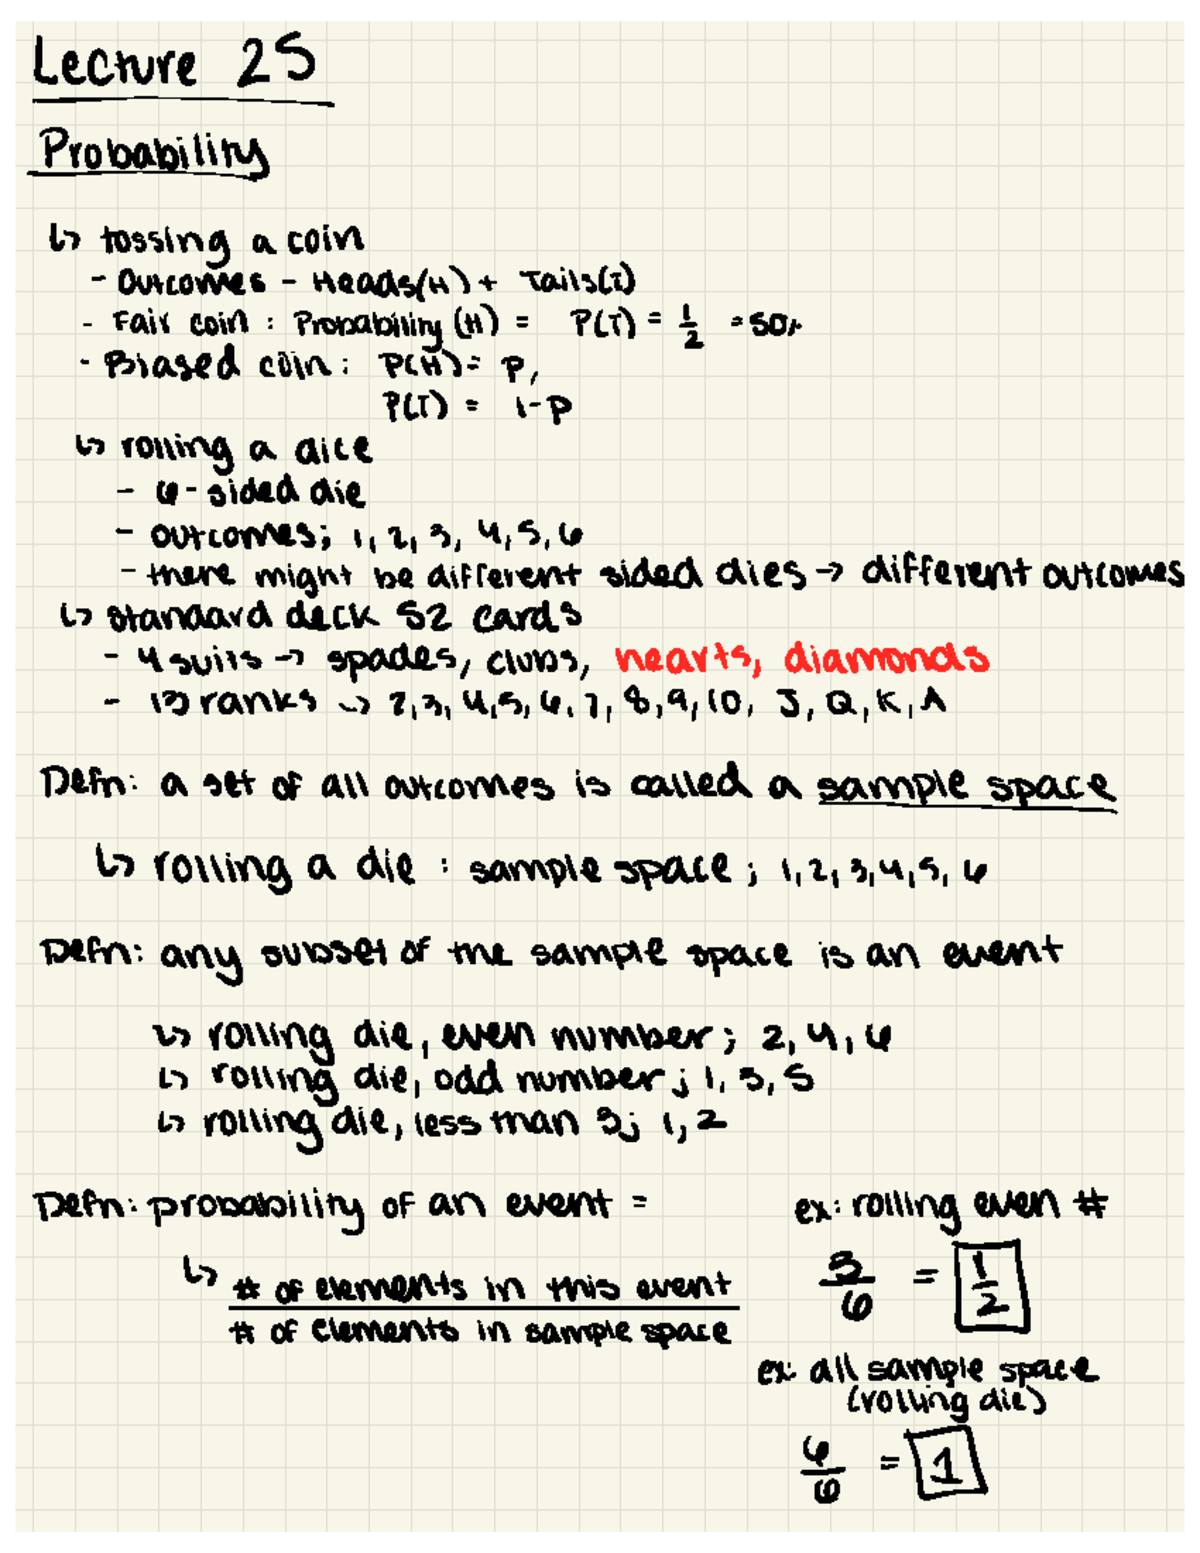 Lecture 25
Probability
↳ tossing a coin
- Outcomes - Heads(H) + Tails(T)
- Fair coin : Probability (H) = P(T) = 1/2 = 50%
- Biased coin: P(H) = p,
P(T) = 1-p
↳ rolling a dice
- 6-sided die
- outcomes; 1, 2, 3, 4, 5, 6
- there might be different sided dies → different outcomes
↳ standard deck 52 cards
- 4 suits → spades, clubs, hearts, diamonds
- 13 ranks → 2, 3, 4, 5, 6, 7, 8, 9, 10, J, Q, K, A
Defn: a set of all outcomes is called a sample space
↳ rolling a die : sample space ; 1, 2, 3, 4, 5, 6
Defn: any subset of the sample space is an event
↳ rolling die, even number; 2, 4, 6
↳ rolling die, odd number; 1, 3, 5
↳ rolling die, less than 3; 1, 2
Defn: probability of an event =
↳ # of elements in this event
# of elements in sample space
ex: rolling even #
3/6 = 1/2
ex: all sample space
(rolling die)
6/6 = 1